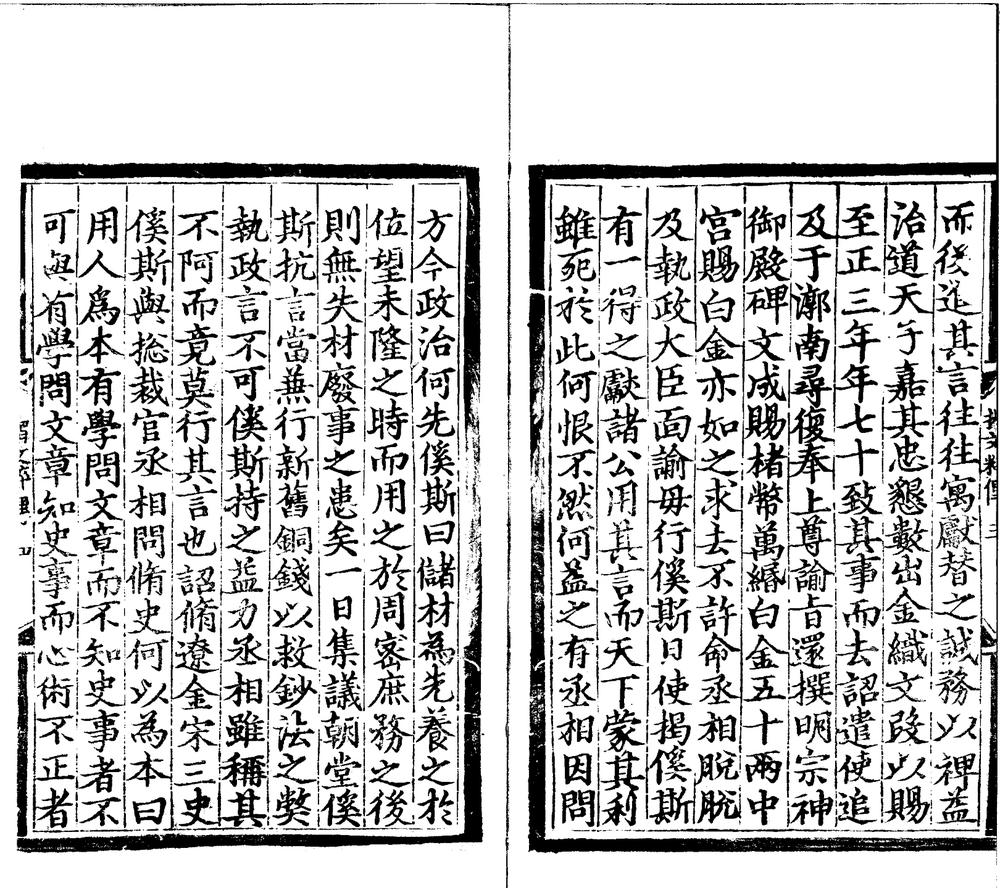 而後進其言往往寓獻替之誠務以裨益
治道天子嘉其忠懇數出金織文段以賜
至正三年年七十致其事而去詔遣使追
及于漷南尋復奉上尊諭旨還撰明宗神
御殿碑文成賜楮幣萬緡白金五十兩中
宮賜白金亦如之求去不許命丞相脫脫
及執政大臣面諭毋行傒斯曰使揭傒斯
有一得之獻諸公用其言而天下蒙其利
雖死於此何恨不然何益之有丞相因問
方今政治何先傒斯曰儲材為先養之於
位望未隆之時而用之於周密庶務之後
則無失材廢事之患矣一日集議朝堂傒
斯抗言當兼行新舊銅錢以救鈔法之獘
執政言不可傒斯持之益力丞相雖稱其
不阿而竟莫行其言也詔脩遼金宋三史
傒斯與揔裁官丞相問脩史何以為本曰
用人爲本有學問文章而不知史事者不
可與有學問文章知史事而心術不正者